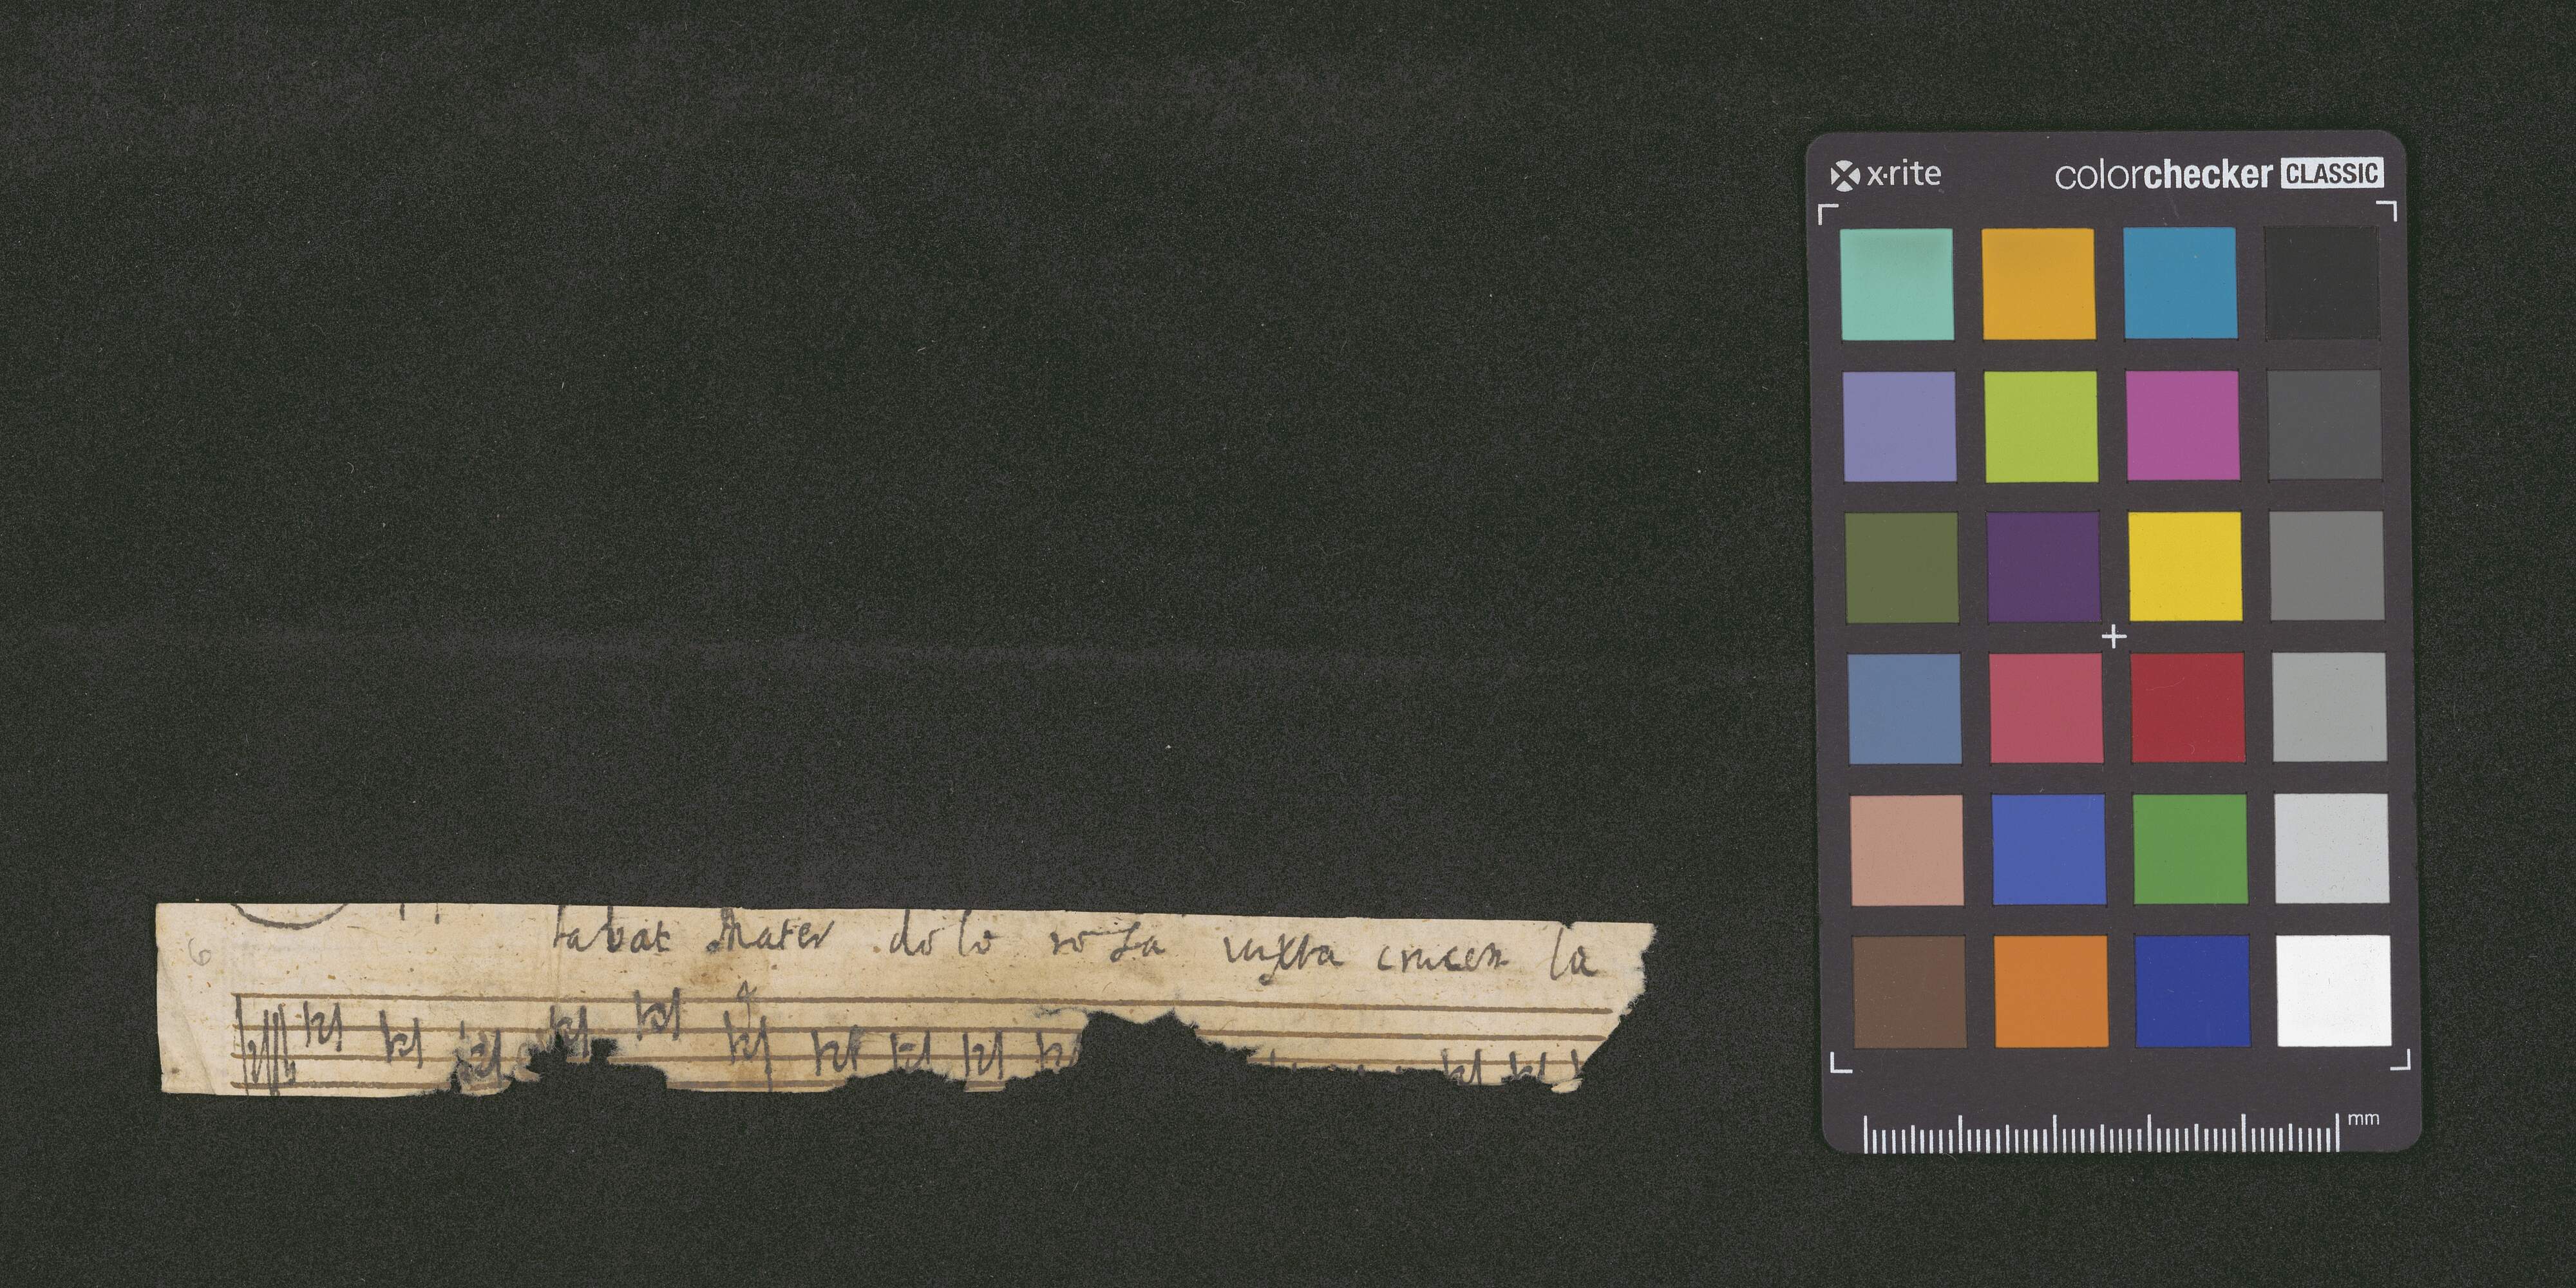 x·rite colorchecker CLASSIC
tabat Mater dolo rosa iuxta crucem la
6
mm